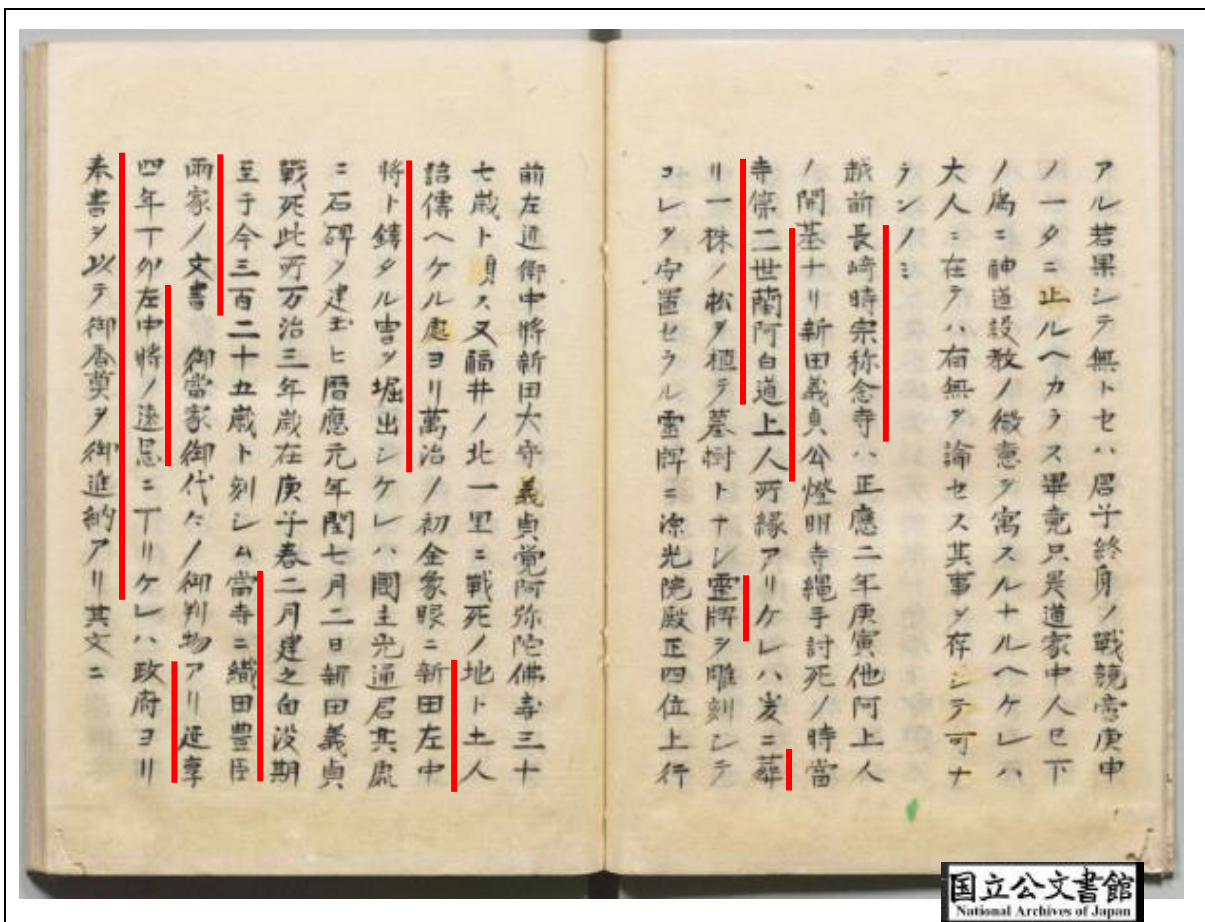 アル若果シテ無トセハ君子終身ノ戦競啻庚申
ノ一夕ニ止ルヘカラス畢竟只是道家中人已下
ノ為ニ神道設教ノ微意ヲ寓スルナルヘケレハ
大人ニ在テハ有無ヲ論セス其事ヲ存シテ可ナ
ランノミ
越前長崎時宗称念寺ハ正應二年庚寅他阿上人
ノ開基ナリ新田義貞公燈明寺縄手討死ノ時當
寺第二世蘭阿白道上人所縁アリケレハ爰ニ葬
リ一株ノ松ヲ植テ墓樹トナシ霊牌ヲ雕刻シテ
コレヲ安置セラル霊牌ニ源光院殿正四位上行
前左近衛中将新田大守義貞覚阿弥陀佛寿三十
七歳ト頭ス又福井ノ北一里ニ戦死ノ地ト土人
語傳ヘケル處ヨリ萬治ノ初金象眼ニ新田左中
将ト鋳タル冑ヲ堀出シケレハ國主光通君其處
ニ石碑ヲ建玉ヒ暦應元年閏七月二日新田義貞
戦死此所万治三年歳在庚子春二月建之自没期
至于今三百二十五歳ト刻シム當寺ニ織田豊臣
両家ノ文書 御當家御代々ノ御判物アリ延享
四年丁卯左中将ノ遠忌ニ丁リケレハ政府ヨリ
奉書ヲ以テ御香奠ヲ御進納アリ其文ニ
国立公文書館
National Archives of Japan